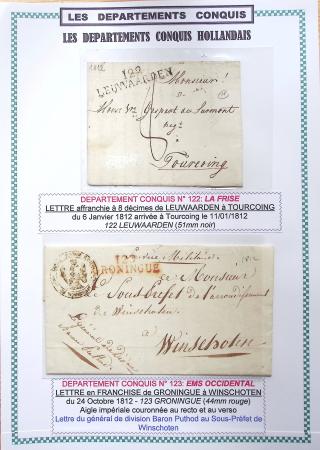 LES DEPARTEMENTS CONQUIS
LES DEPARTEMENTS CONQUIS HOLLANDAIS
1812
122
LEUWAARDEN
Monsieur
à
Tourcoing
DEPARTEMENT CONQUIS N° 122: LA FRISE
LETTRE affranchie à 8 décimes de LEUWAARDEN à TOURCOING
du 6 Janvier 1812 arrivée à Tourcoing le 11/01/1812
122 LEUWAARDEN (51mm noir)
123
GRONINGUE
1812
à Monsieur
Le Sous Préfet de l'arrondissement
de Winschoten
à
Winschoten
DEPARTEMENT CONQUIS N° 123: EMS OCCIDENTAL
LETTRE en FRANCHISE de GRONINGUE à WINSCHOTEN
du 24 Octobre 1812 - 123 GRONINGUE (44mm rouge)
Aigle impériale couronnée au recto et au verso
Lettre du général de division Baron Puthod au Sous-Préfet de
Winschoten